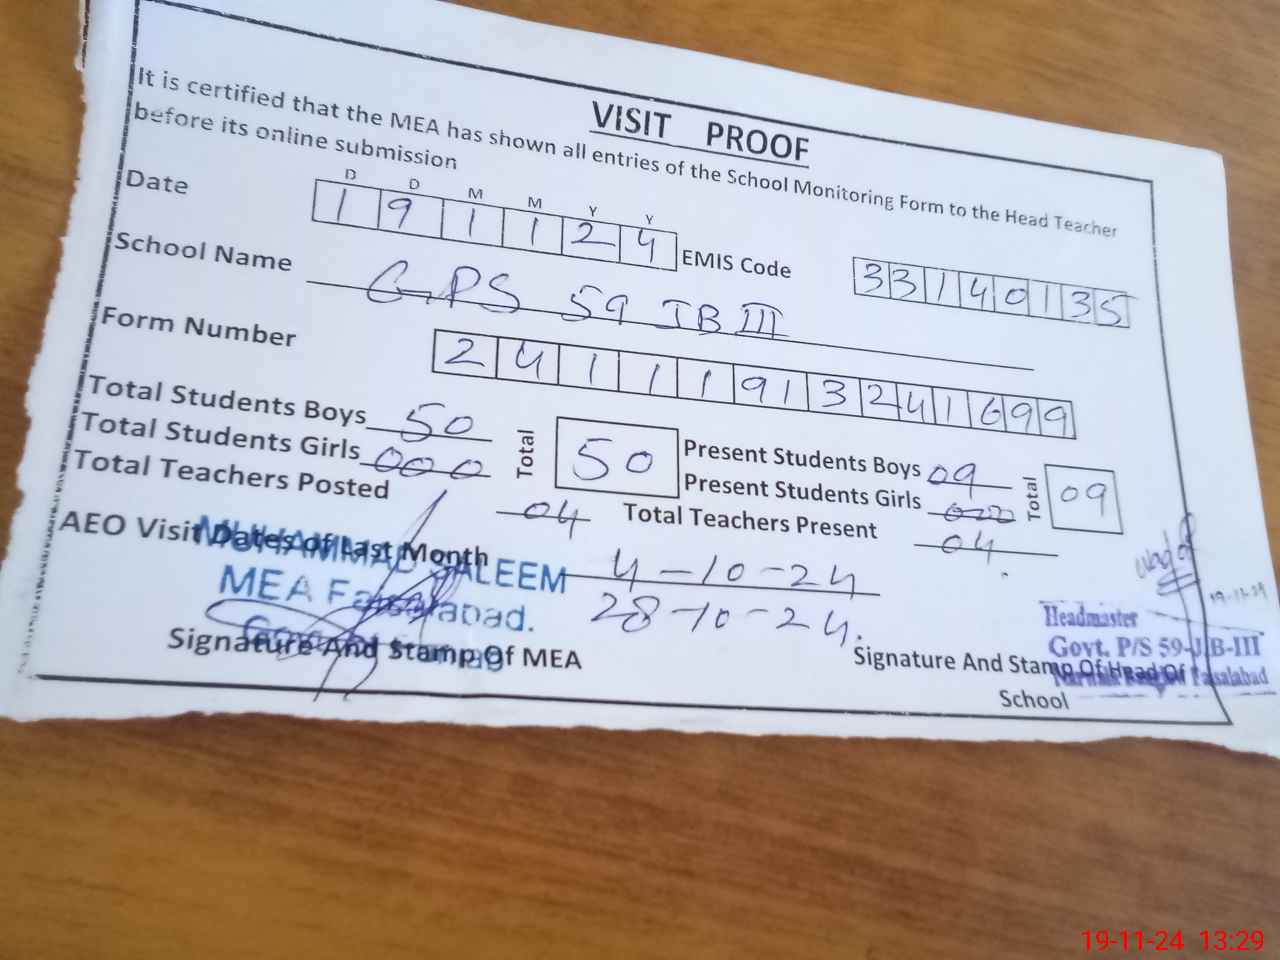 VISIT PROOF
It is certified that the MEA has shown all entries of the School Monitoring Form to the Head Teacher
before its online submission
D D M M Y Y
Date 1 9 1 1 2 4 EMIS Code 3 3 1 4 0 1 3 5
School Name GPS 59 JB III
Form Number 2 4 1 1 1 9 1 3 2 4 1 6 9 9
Total Students Boys 50 Total 50 Present Students Boys 09 Total 09
Total Students Girls 000 Present Students Girls 000
Total Teachers Posted 04 Total Teachers Present 04
AEO Visit Dates of Last Month 4-10-24
28-10-24.
MUHAMMAD SALEEM
MEA Faisalabad.
Signature And Stamp Of MEA
Headmaster
Govt. P/S 59-J.B-III
Faisalabad
Signature And Stamp Of Head Of
School
19-11-24 13:29